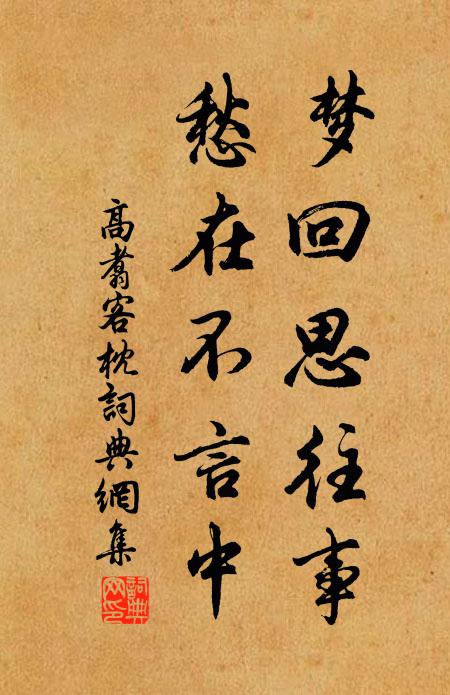 梦回思往事
愁在不言中
高翥客枕詞典網集
詞典网印